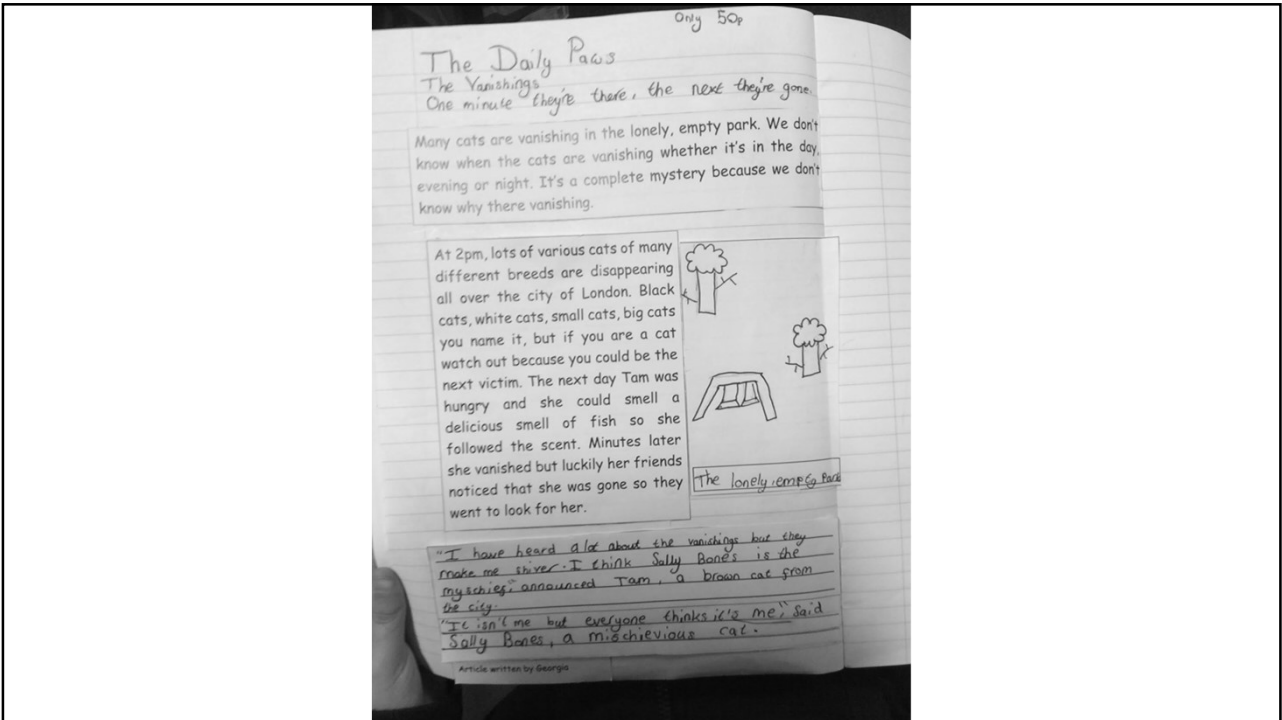 Only 50p
The Daily Paws
The Vanishings
One minute they're there, the next they're gone.
Many cats are vanishing in the lonely, empty park. We don't
know when the cats are vanishing whether it's in the day,
evening or night. It's a complete mystery because we don't
know why there vanishing.
At 2pm, lots of various cats of many
different breeds are disappearing
all over the city of London. Black
cats, white cats, small cats, big cats
you name it, but if you are a cat
watch out because you could be the
next victim. The next day Tam was
hungry and she could smell a
delicious smell of fish so she
followed the scent. Minutes later
she vanished but luckily her friends
noticed that she was gone so they
went to look for her.
The lonely, empty Park
"I have heard a lot about the vanishings but they
make me shiver. I think Sally Bones is the
myschief," announced Tam, a brown cat from
the city.
"It isn't me but everyone thinks it's me," said
Sally Bones, a mischievious cat.
Article written by Georgia